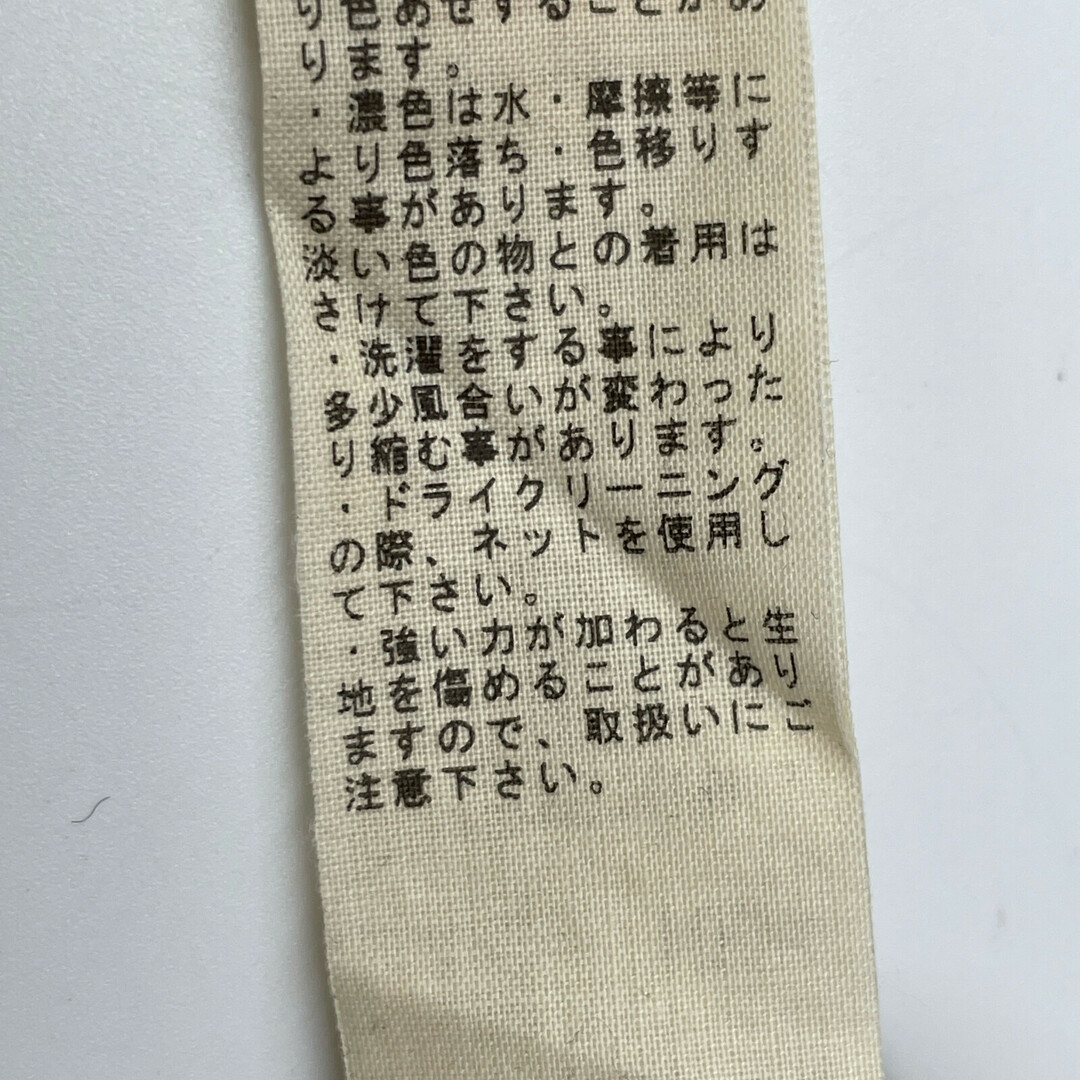 り色あせすることがあ
ります。
・濃色は水・摩擦等に
より色落ち・色移りす
る事があります。
淡い色の物との着用は
さけて下さい。
・洗濯をする事により
多少風合いが変わった
り縮む事があります。
・ドライクリーニング
の際、ネットを使用し
て下さい。
・強い力が加わると生
地を傷めることがあり
ますので、取扱いにご
注意下さい。